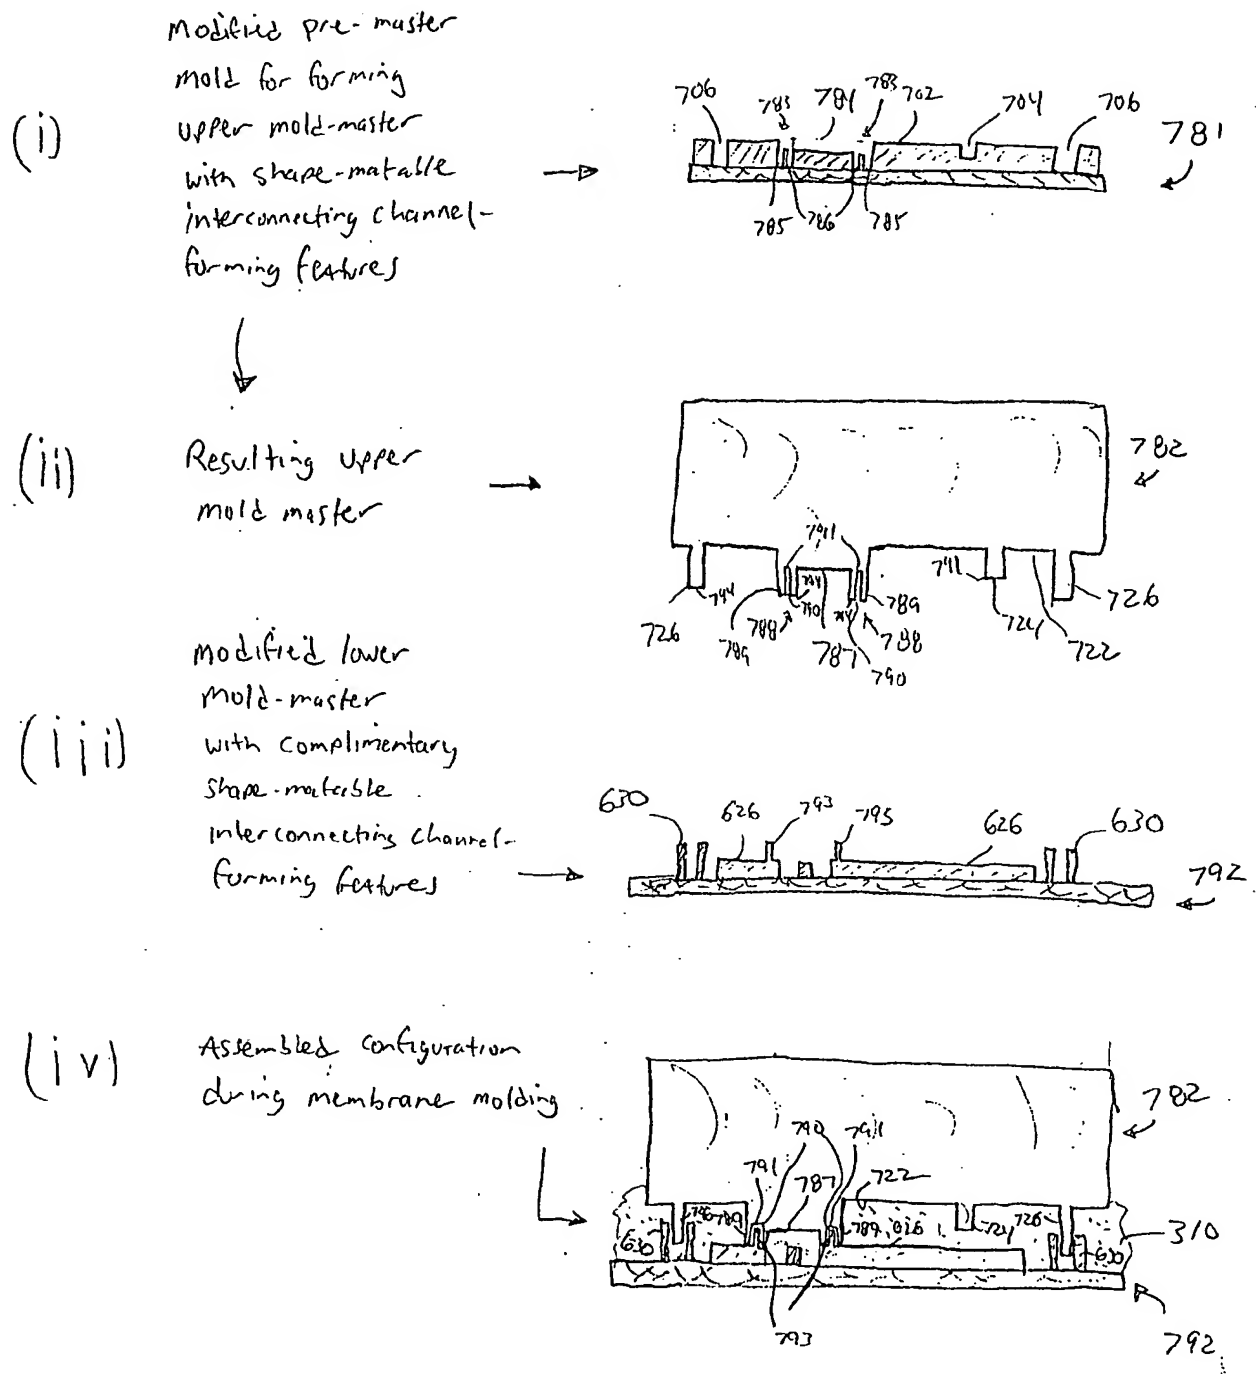 (i)
Modified pre-master
mold for forming
upper mold-master
with shape-matable
interconnecting channel-
forming features
706 783 784 783 702 704 706
781
785 786 785
(ii)
Resulting upper
mold master
782
791
741
744 794 794
726 789 788 790 787 790 788 789 724 722 726
(iii)
modified lower
mold-master
with complimentary
shape-matable
interconnecting channel-
forming features
630 626 793 795 626 630
792
(iv)
Assembled configuration
during membrane molding
782
790 791
791 787 722
630 789 789 724 726 630
310
793
792